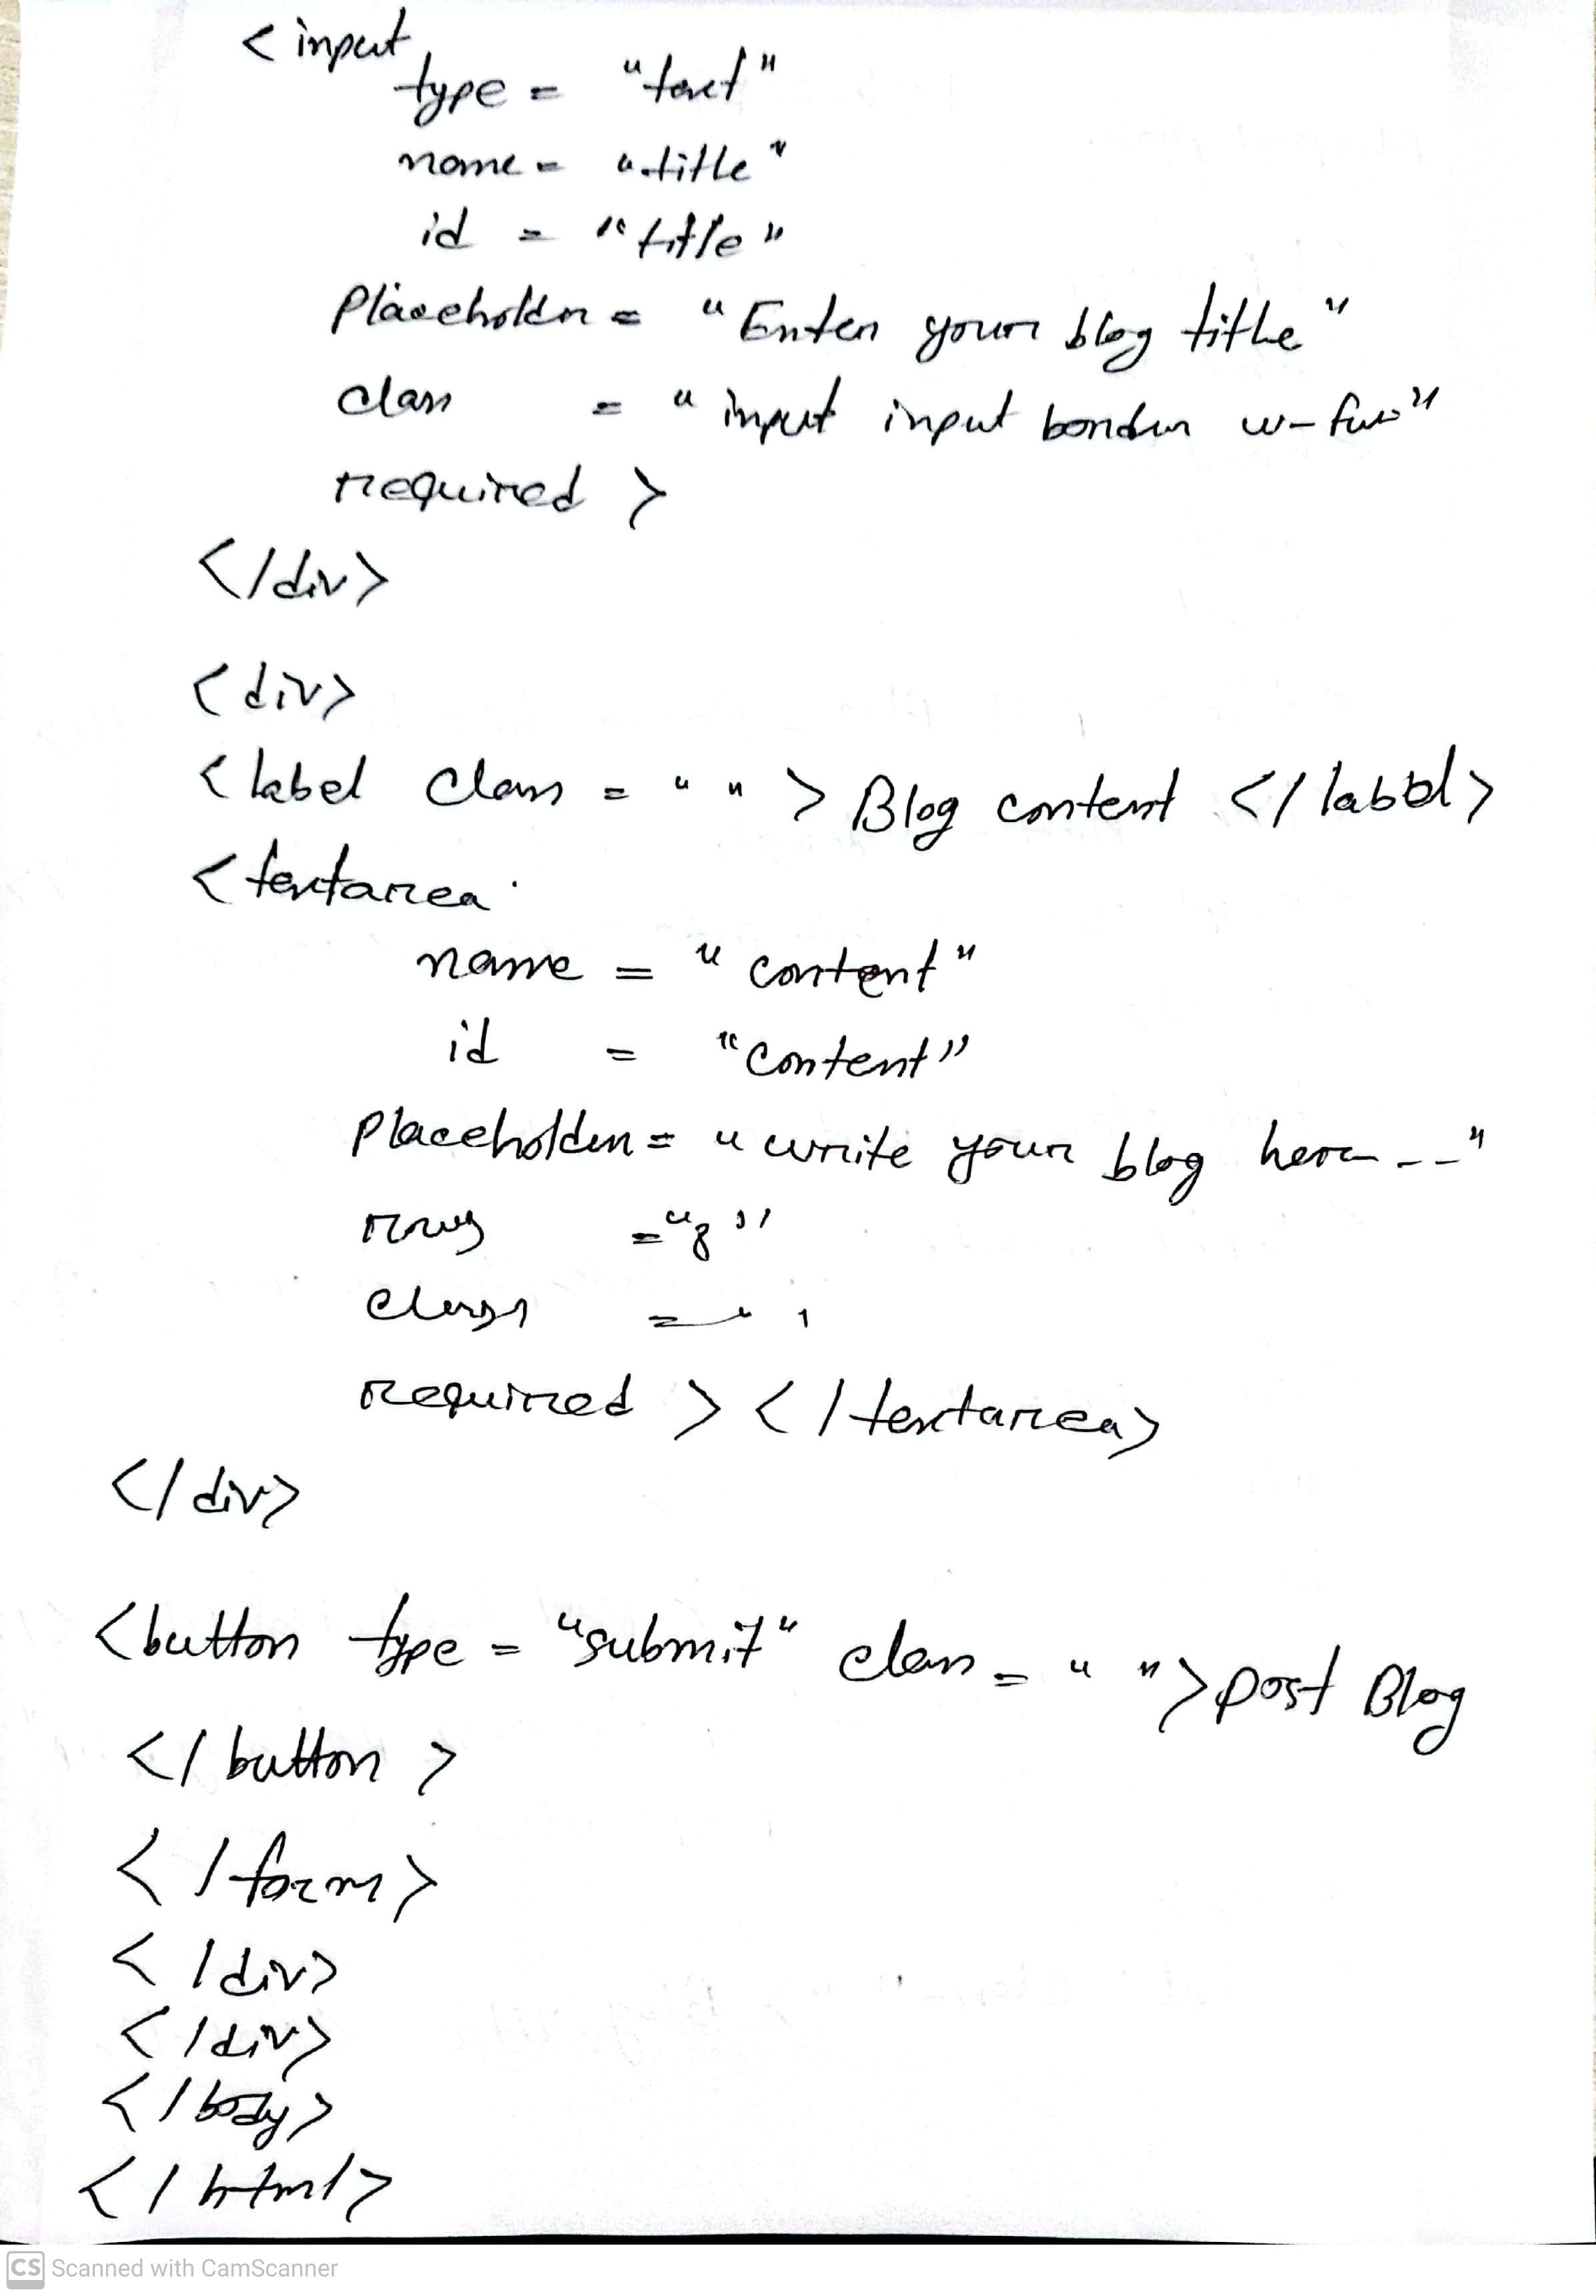 <input
type = "text"
name = "title"
id = "title"
Placeholder = "Enter your blog title"
class = "input input border w-full"
required >
</div>
<div>
<label class = " " > Blog content </label>
<textarea
name = "content"
id = "content"
Placeholder = "write your blog here --"
rows = "8"
class = " "
required > </textarea>
</div>
<button type = "submit" class = " "> post Blog
</button >
</form>
</div>
</div>
</body>
</html>
CS Scanned with CamScanner